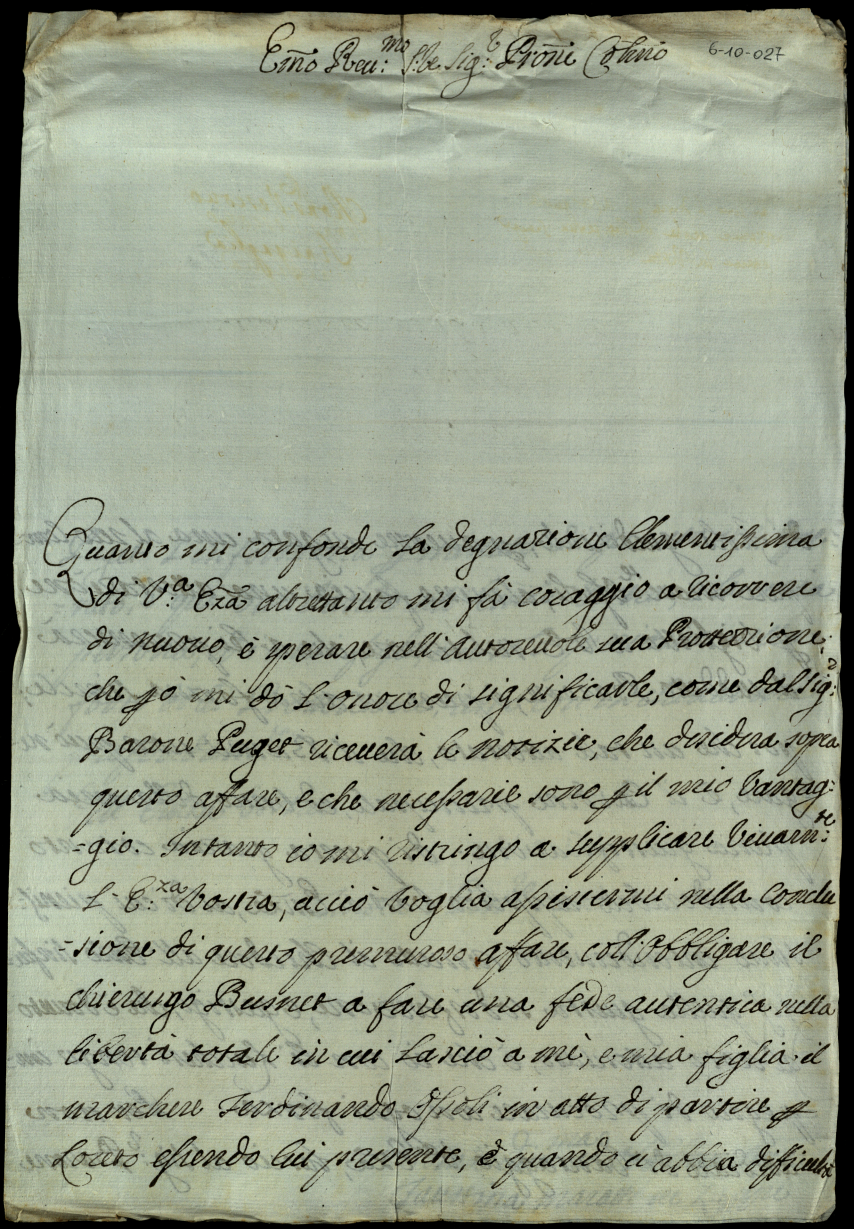 Emõ Reu:mo S.re Sig:r Proñe Colmõ
6-10-027
Quanto mi confonde la degnazione Clementissima
di V:a Ezã altrettanto mi fà coraggio a ricorrere
di nuovo, è sperare nell'autoreuole sua Protettione;
che pò mi dò l'onore di significarle, come dal Sig:r
Barone Puget riceuerà le notizie, che desidera sopra
questo affare, e che necessarie sono p il mio Vantag=
=gio. Intanto io mi ristringo a supplicare Viuam:te
L'E:za Vostra, acciò Voglia assistermi nella Conclu
=sione di questo premuroso affare, coll'obbligare il
chierurgo Busnet a fare una fede autentica nella
libertà totale in cui lasciò a mè, e mia figlia il
marchese Ferdinando Ossoli in atto di partire p
Loreto essendo lui presente, è quando ci abbia difficoltà